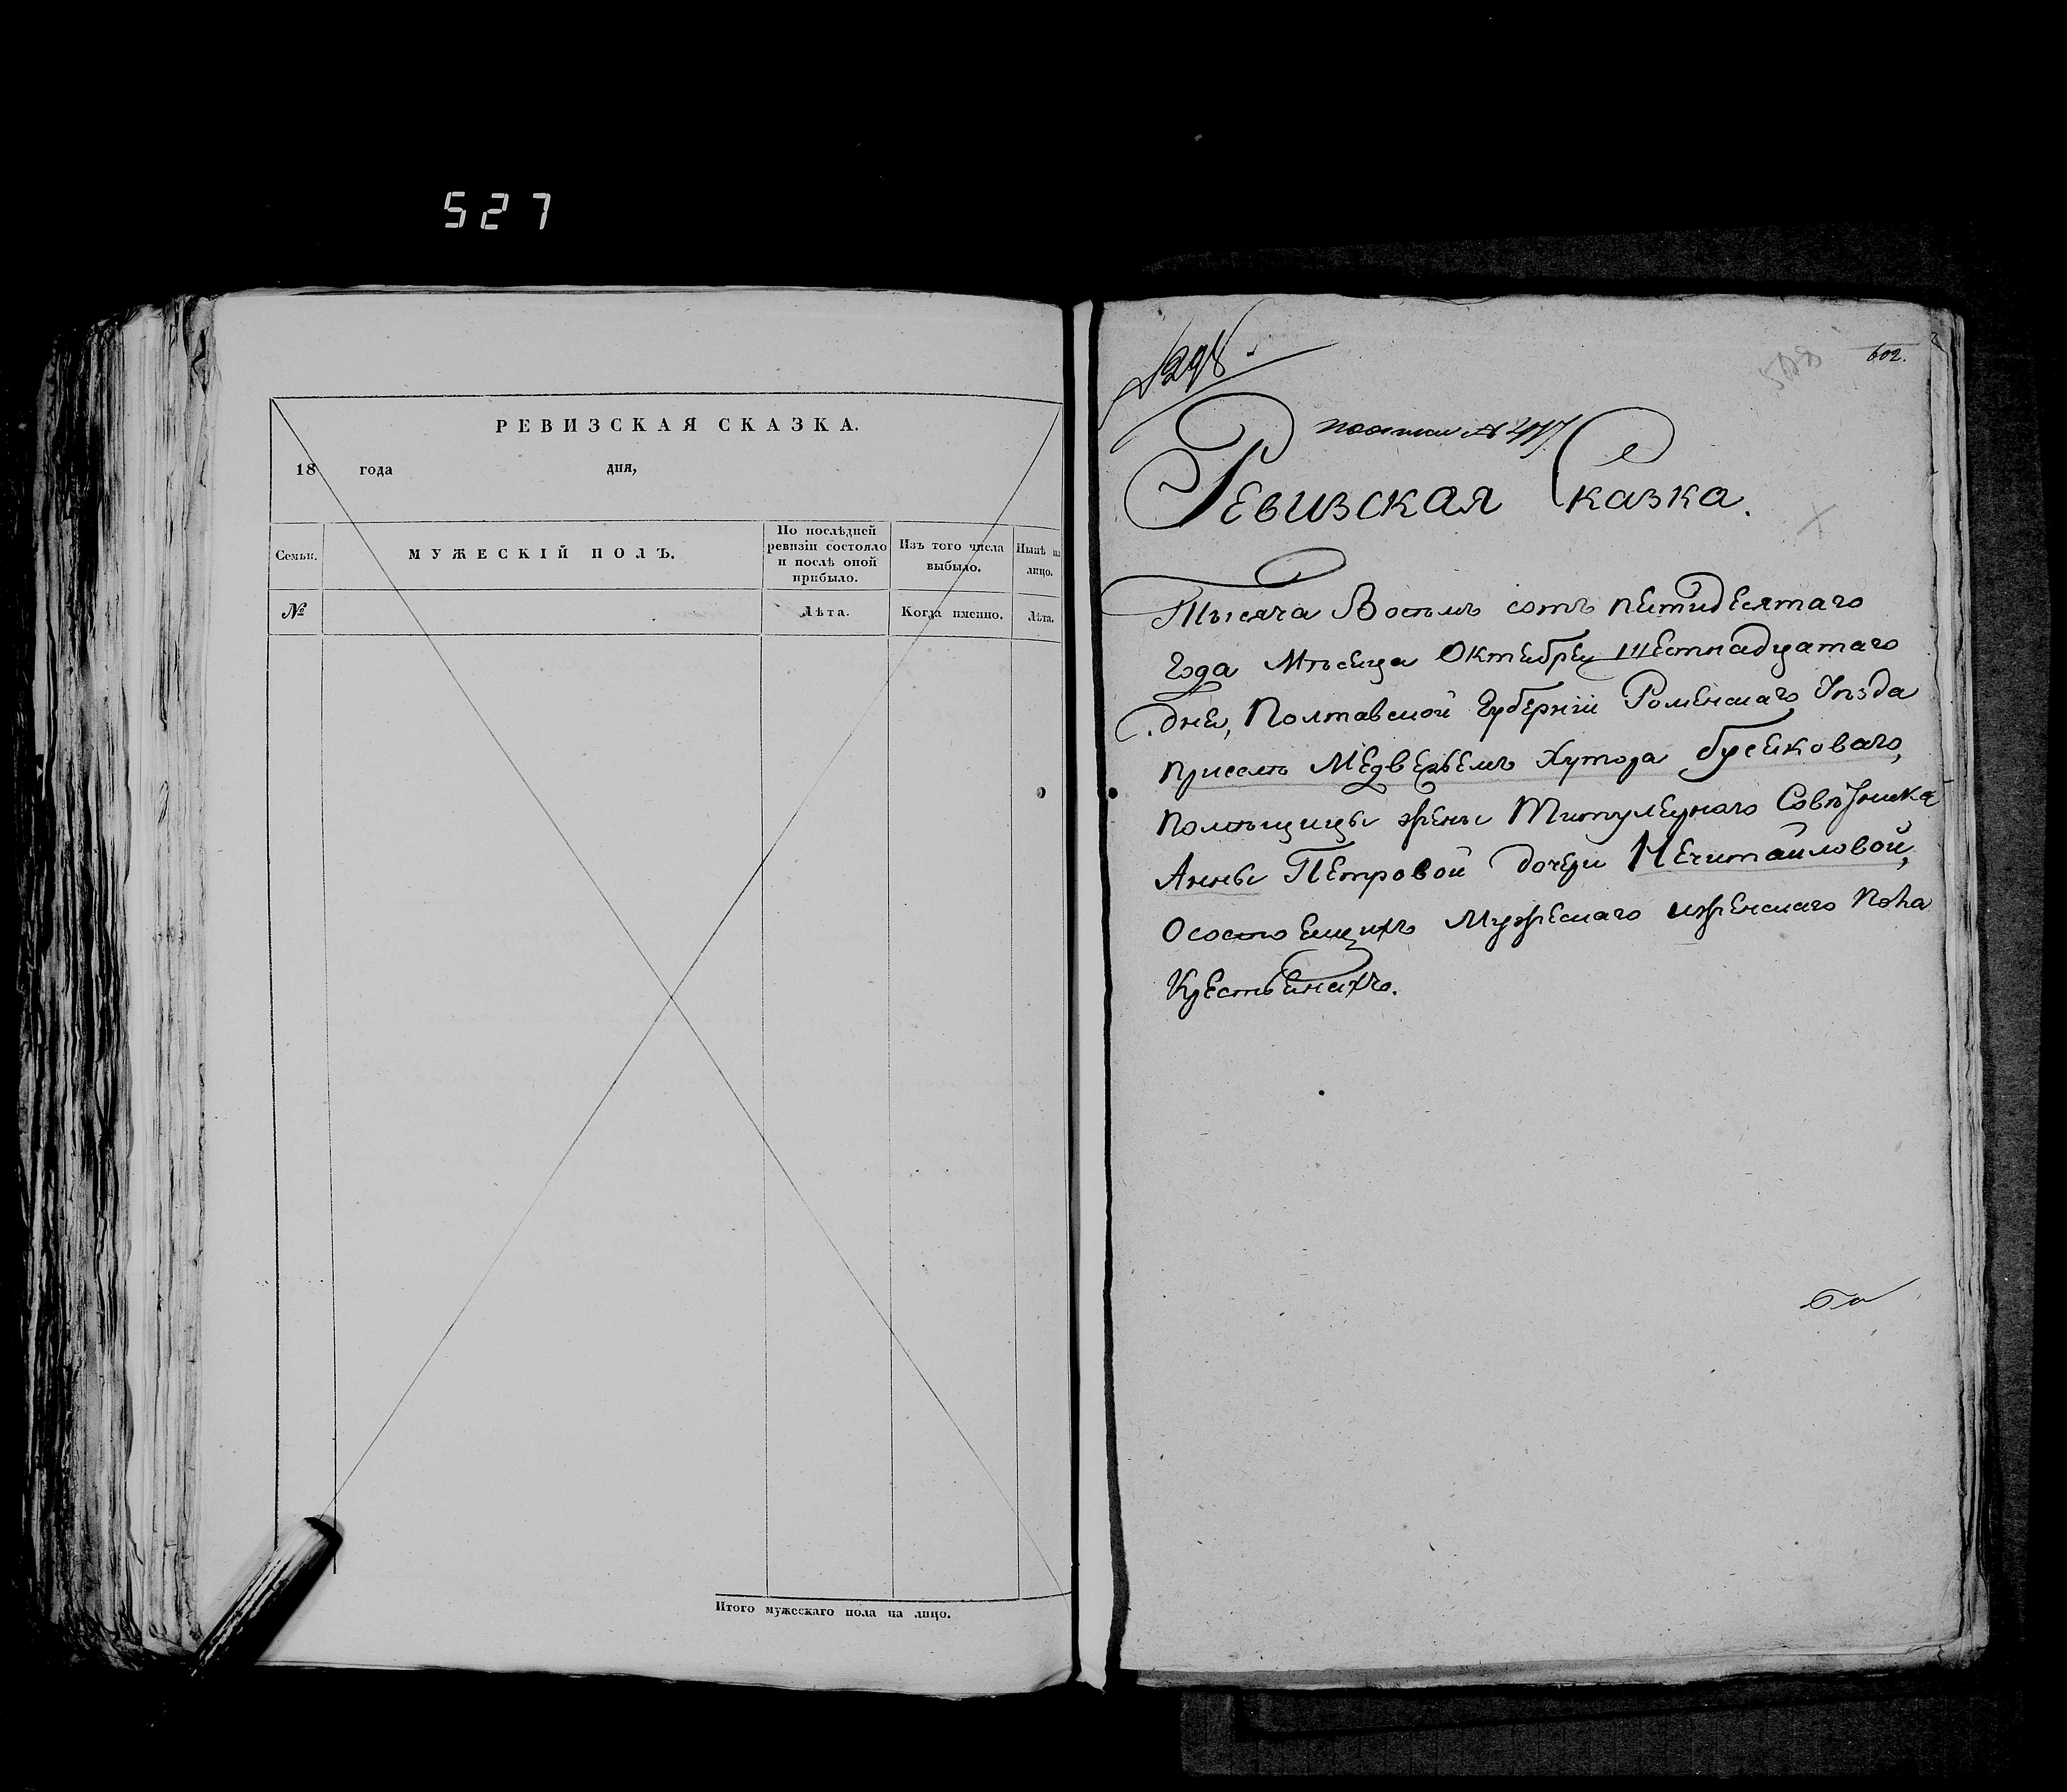 527
РЕВИЗСКАЯ СКАЗКА.
18 года дня,
Семьи.
МУЖЕСКІЙ ПОЛЪ.
По послѣдней
ревизіи состояло
и послѣ оной
прибыло.
Изъ того числа
выбыло.
Нынѣ на
лицо.
№
Лѣта.
Когда именно.
Лѣта.
Итого мужескаго пола на лицо.
602.
Ревизская Сказка.
Тысяча Восемь сотъ петидесятаго
года Мѣсеца Октебре шестнадцатаго
дне, Полтавской Губерніи Роменскаго Уѣзда
при селѣ Медвежьемъ Хутора Бусенковаго,
помѣщицы жены Титулернаго Совѣтника
Анны Петровой дочери Нечитайловой,
О состоещихъ Мужескаго и женскаго пола
Крестьенахъ.